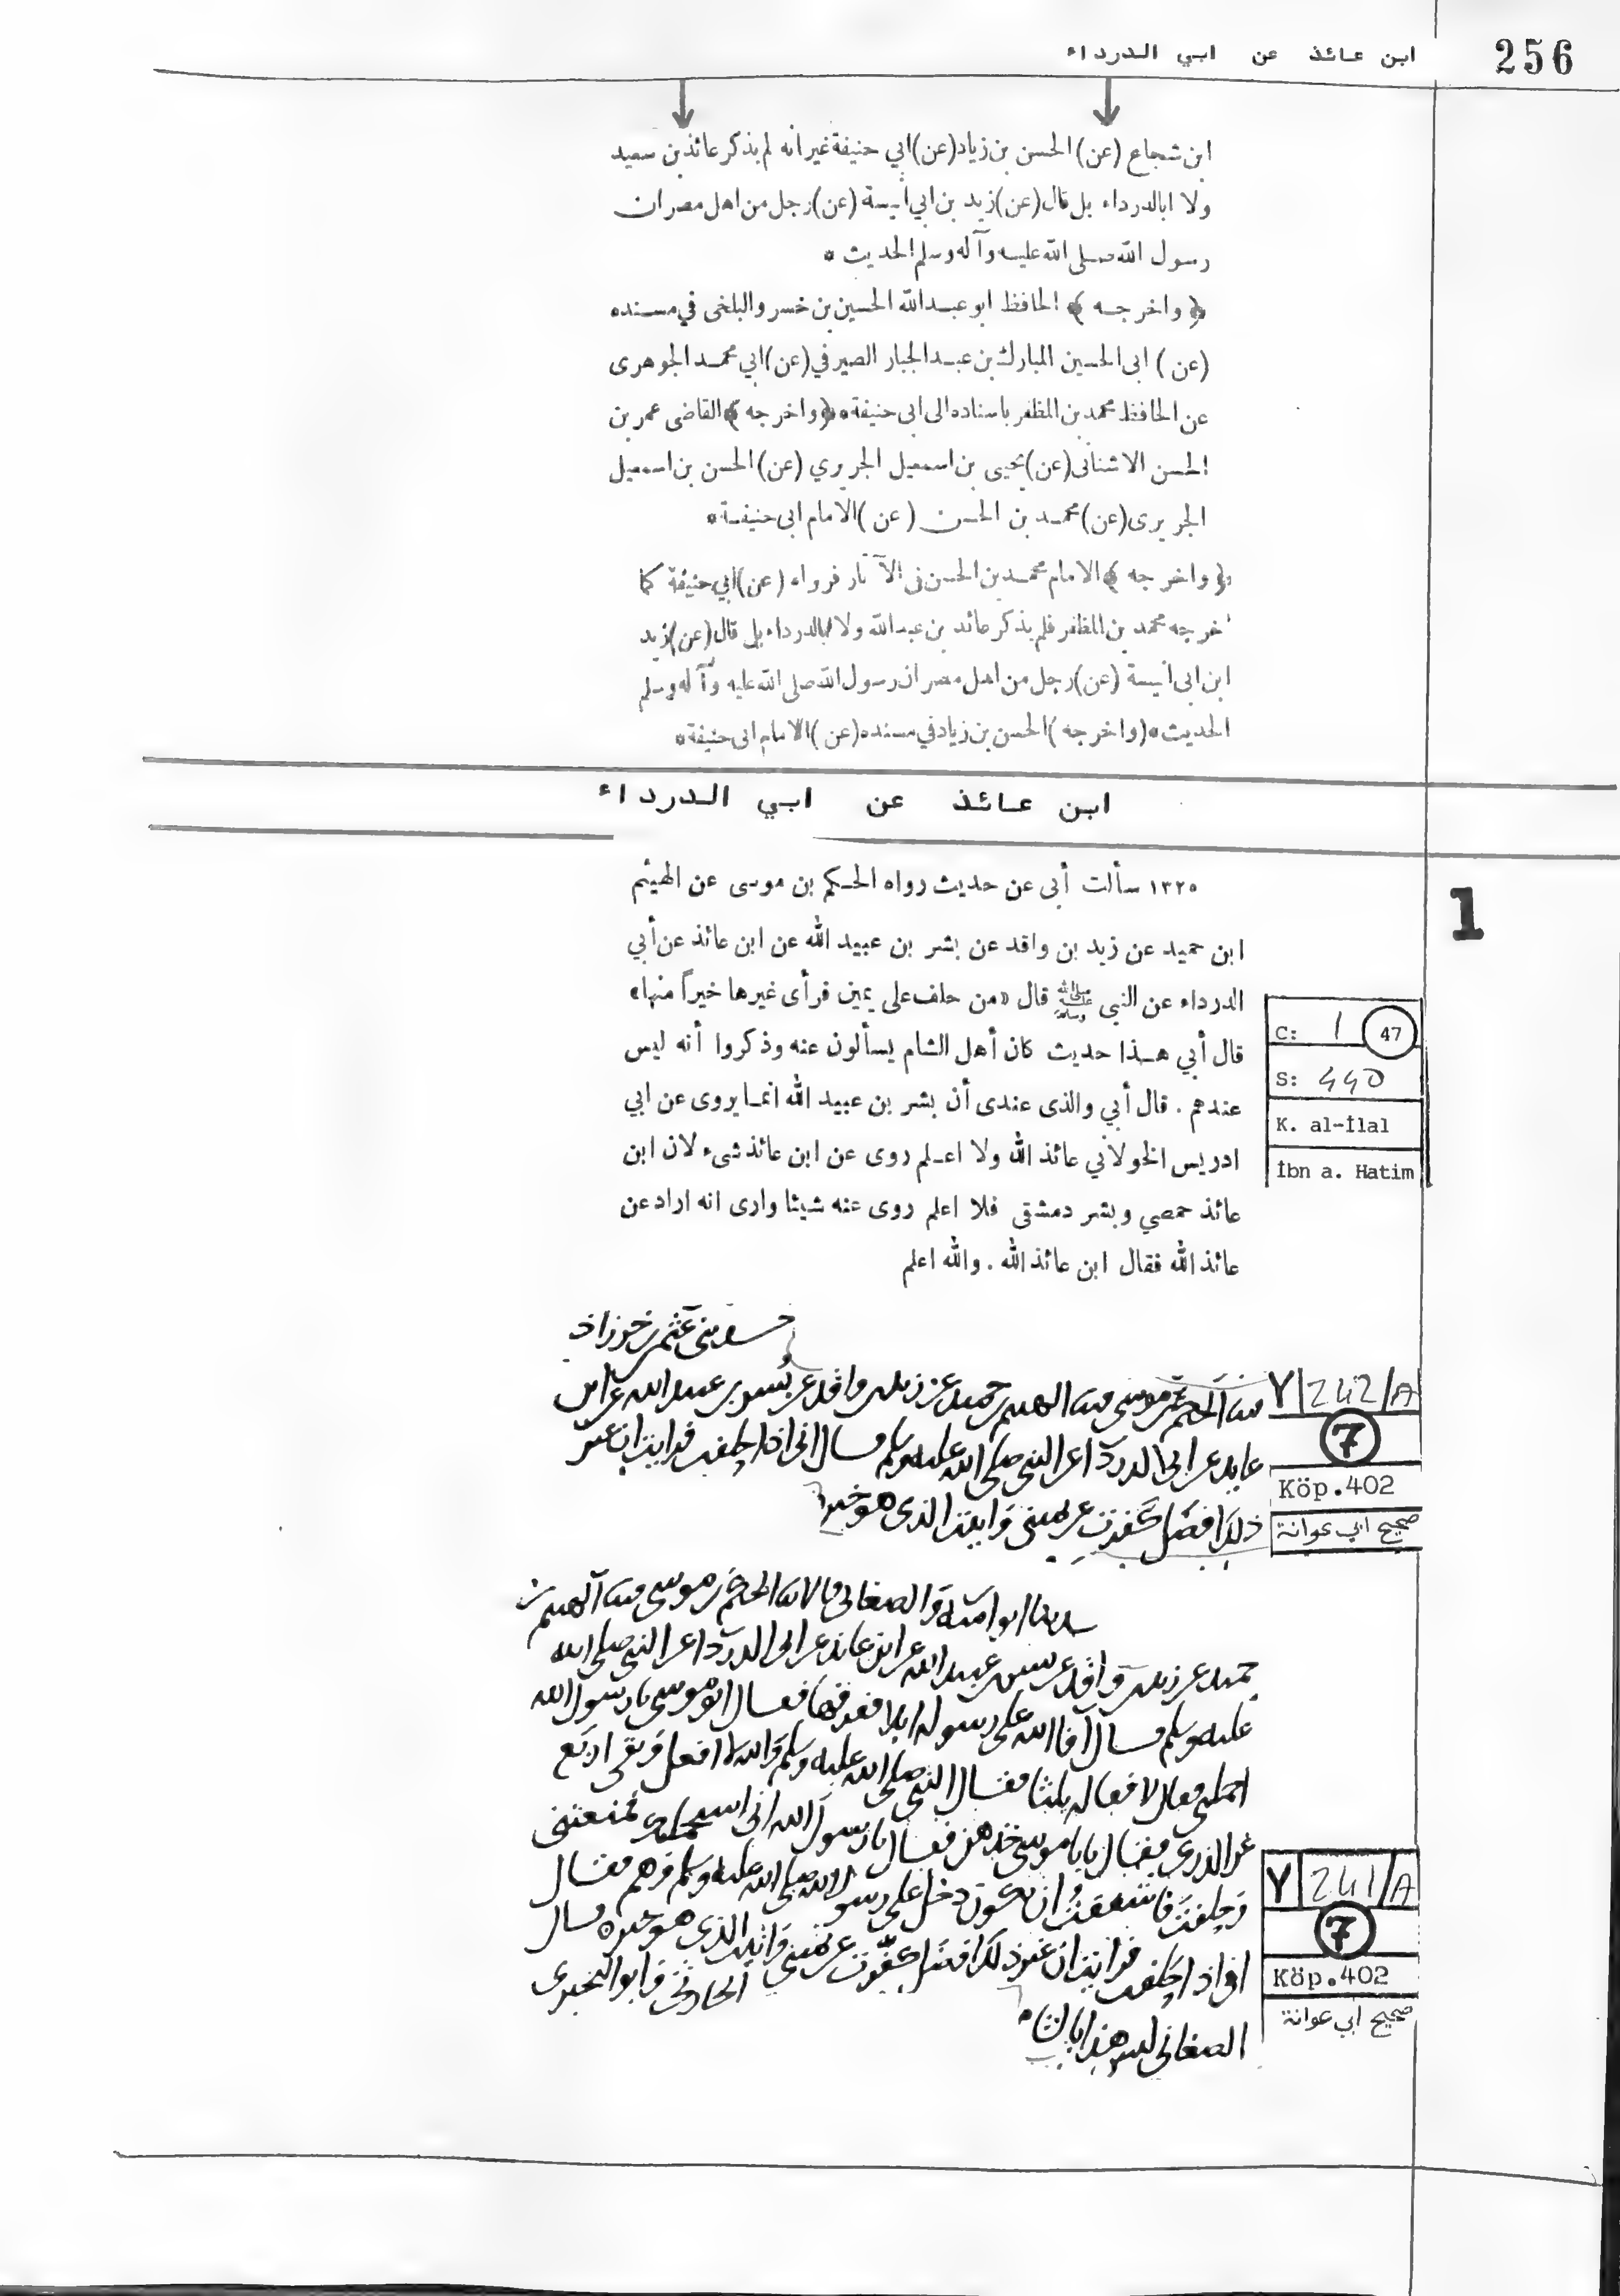 256
ابن عائذ عن ابي الدرداء
ابن شجاع (عن) الحسن بن زياد (عن) ابي حنيفة غير انه لم يذكر عائذ بن سعيد
ولا ابا الدرداء بل قال (عن) زيد بن ابي انيسة (عن) رجل من اهل مصر ان
رسول الله صلى الله عليه وآله وسلم الحديث *
﴿ واخرجه ﴾ الحافظ ابو عبد الله الحسين بن خسرو البلخى في مسنده
(عن) ابى الحسين المبارك بن عبد الجبار الصيرفي (عن) ابي محمد الجوهرى
عن الحافظ محمد بن المظفر باسناده الى ابى حنيفة * ﴿ واخرجه ﴾ القاضى عمر بن
الحسن الاشنانى (عن) يحيى بن اسمعيل الجريري (عن) الحسن بن اسمعيل
الجريرى (عن) محمد بن الحسن (عن) الامام ابى حنيفة *
﴿ واخرجه ﴾ الامام محمد بن الحسن فى الآثار فرواه (عن) ابي حنيفة كما
اخرجه محمد بن المظفر فلم يذكر عائد بن عبد الله ولا ابا الدرداء بل قال (عن) زيد
ابن ابى انيسة (عن) رجل من اهل مصر ان رسول الله صلى الله عليه وآله وسلم
الحديث * (واخرجه) الحسن بن زياد في مسنده (عن) الامام ابى حنيفة *
ابن عائذ عن ابي الدرداء
1
١٣٢٥ سألت أبى عن حديث رواه الحكم بن موسى عن الهيثم
ابن حميد عن زيد بن واقد عن بشر بن عبيد الله عن ابن عائذ عن أبي
الدرداء عن النبي ﷺ قال «من حلف على يمين فرأى غيرها خيراً منها»
قال أبي هذا حديث كان أهل الشام يسألون عنه وذكروا أنه ليس
عندهم . قال أبي والذى عندى أن بشر بن عبيد الله انما يروى عن ابي
ادريس الخولاني عائذ الله ولا اعلم روى عن ابن عائذ شىء لان ابن
عائذ حمصي وبشر دمشقى فلا اعلم روى عنه شيئا وارى انه اراد عن
عائذ الله فقال ابن عائذ الله . والله اعلم
C: 1 47
S: 440
K. al-İlal
İbn a. Hatim
عثمن خرزاد
الحكم بن موسى الهيثم بن حميد عن زيد بن واقد عن بسر بن عبيد الله عن ابن
عايذ عن ابى الدرداء عن النبي صلى الله عليه وسلم قال انى اذا حلفت فرايت ان غير
ذلك افضل كفرت عن يمينى واتيت الذى هو خير
Y 242/A
7
Köp.402
صحيح ابي عوانة
حدثنا ابو امية والصغانى قالا الحكم بن موسى الهيثم بن
حميد عن زيد بن واقد عن بسر بن عبيد الله عن ابن عائذ عن ابى الدرداء عن النبي صلى الله
عليه وسلم قال افا الله على رسوله ابلا ففرقها فقال ابو موسى يا رسول الله
احملنى فقال لا فقاله ثلثا فقال النبي صلى الله عليه وسلم والله لا افعل وبقى اربع
غر الذرى فقال يا با موسى خذهن فقال يا رسول الله انى فمنعتنى
وحلفت فاشفقت ان يكون دخل على رسول الله صلى الله عليه وسلم وهم فقال
انى اذا حلفت فرايت ان غير ذلك افضل كفرت عن يمينى واتيت الذى هو خير قال
الصغانى ليس هذا بالشام
الحارثى وابو البخترى
Y 241/A
7
Köp.402
صحيح ابي عوانة